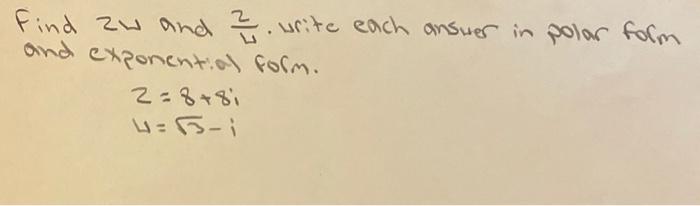 Find zw and z/w. write each answer in polar form
and exponential form.
z = 8 + 8i
w = √3 - i